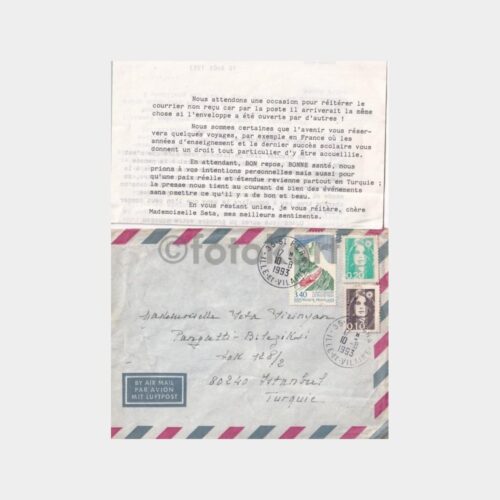 Nous attendons une occasion pour réitérer le
courrier non reçu car par la poste il arriverait la même
chose si l'enveloppe a été ouverte par d'autres !
Nous sommes certaines que l'avenir vous réser-
vera quelques voyages, par exemple en France où les
années d'enseignement et le dernier succès scolaire vous
donnent un droit tout particulier d'y être accueillie.
En attendant, BON repos, BONNE santé, nous
prions à vos intentions personnelles mais aussi pour
qu'une paix réelle et étendue revienne partout en Turquie ;
la presse nous tient au courant de bien des événements
sans omettre ce qu'il y a de bon et beau.
En vous restant unies, je vous réitère, chère
Mademoiselle Seta, mes meilleurs sentiments.
©foto
10-8
1993
ILLE-ET-VILAINE
3,40
0,20
0,10
10-8
1993
ILLE-ET-VILAINE
Mademoiselle Seta
Pangaltı
Sok 128/2
80240 Istanbul
Turquie
BY AIR MAIL
PAR AVION
MIT LUFTPOST